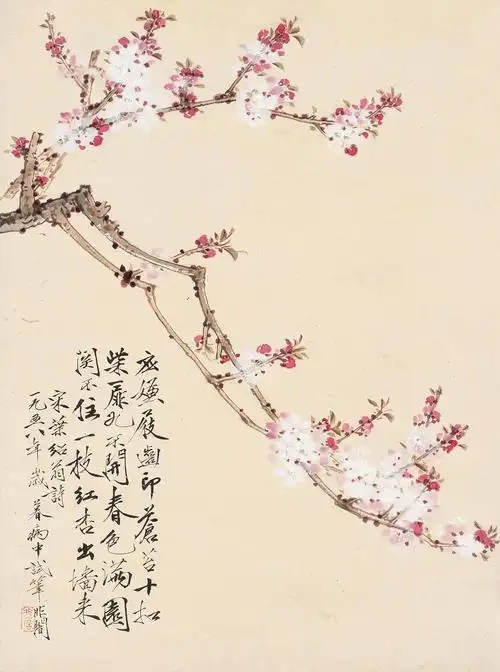 应嫌屐齒印蒼苔十扣
柴扉九不開春色滿園
関不住一枝紅杏出墻来
宋葉紹翁詩
一九五八年歲暮病中試筆非闇